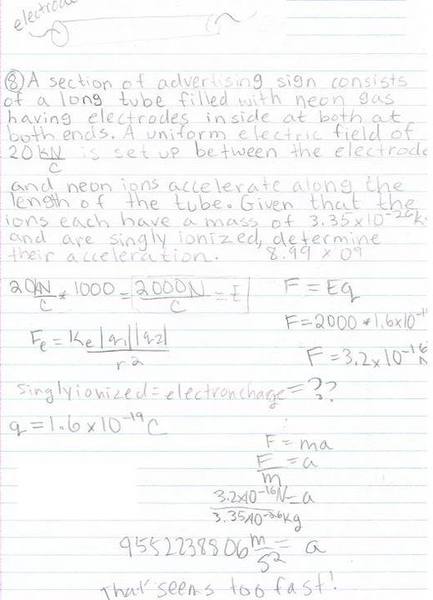 electrode
⑧ A section of advertising sign consists
of a long tube filled with neon gas
having electrodes inside at both at
both ends. A uniform electric field of
20 kN/C is set up between the electrode
and neon ions accelerate along the
length of the tube. Given that the
ions each have a mass of 3.35×10^-26 k
and are singly ionized, determine
their acceleration. 8.99 × 09
20 kN/C * 1000 = 2000N/C = E
F = Eq
F = 2000 * 1.6×10^-1
Fe = Ke |q1||q2| / r2
F = 3.2×10^-16 N
singly ionized = electron charge = ??
q = 1.6×10^-19 C
F = ma
F/m = a
3.2×10^-16 N / 3.35×10^-26 kg = a
9552238806 m/s^2 = a
That seems too fast!